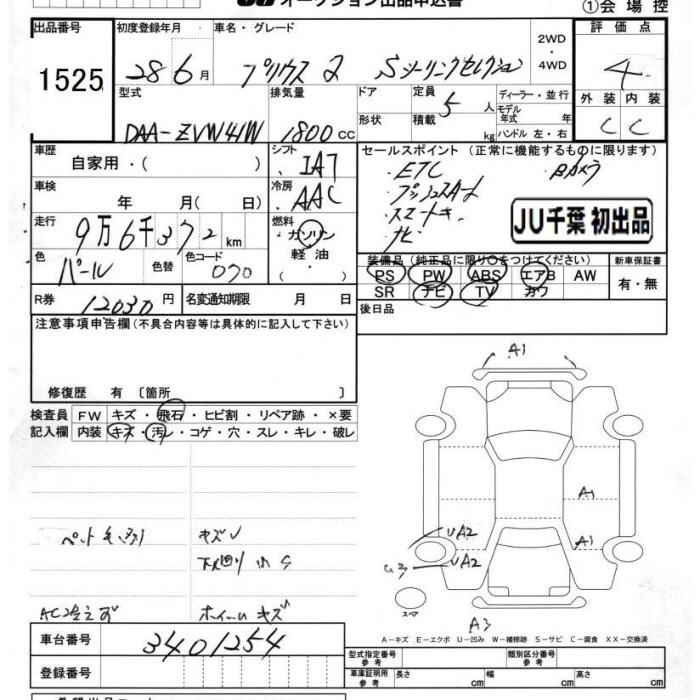 オークション出品申込書
①会場控
出品番号 初度登録年月 車名・グレード 2WD・4WD 評価点
1525 28 6月 プリウス S ツーリングセレクション 4
型式 排気量 ドア 定員 5人 ディーラー・並行 外装 内装
DAA-ZVW41W 1800cc 形状 積載 kg モデル年式 年 ハンドル 左・右 C C
車歴 自家用・( ) シフト IAT セールスポイント (正常に機能するものに限ります)
車検 年 月( 日) 冷房 AAC
・ETC Bカメラ
・プッシュスタート
・スマートキー
・ナビ
JU千葉 初出品
走行 9万6千372km 燃料 ガソリン・軽油・
色 パール 色替 色コード 070
装備品 (純正品に限り○をつけてください) 新車保証書
PS PW ABS エアB AW 有・無
SR ナビ TV カワ
R券 12030円 名変通知期限 月 日
後日品
注意事項申告欄 (不具合内容等は具体的に記入して下さい)
修復歴 有 〔箇所 〕
検査員 FW キズ・飛石・ヒビ割・リペア跡・×要
記入欄 内装 キズ・汚レ・コゲ・穴・スレ・キレ・破レ
A1
A1
A1
UA2
UA2
A3
スペア
キズ
下廻り サビ
AC冷えず ホイールキズ
A－キズ E－エクボ U－凹み W－補修跡 S－サビ C－腐食 XX－交換済
車台番号 3401254
型式指定番号 参考 類別区分番号 参考
登録番号
車庫証明用 参考 長さ cm 幅 cm 高さ cm